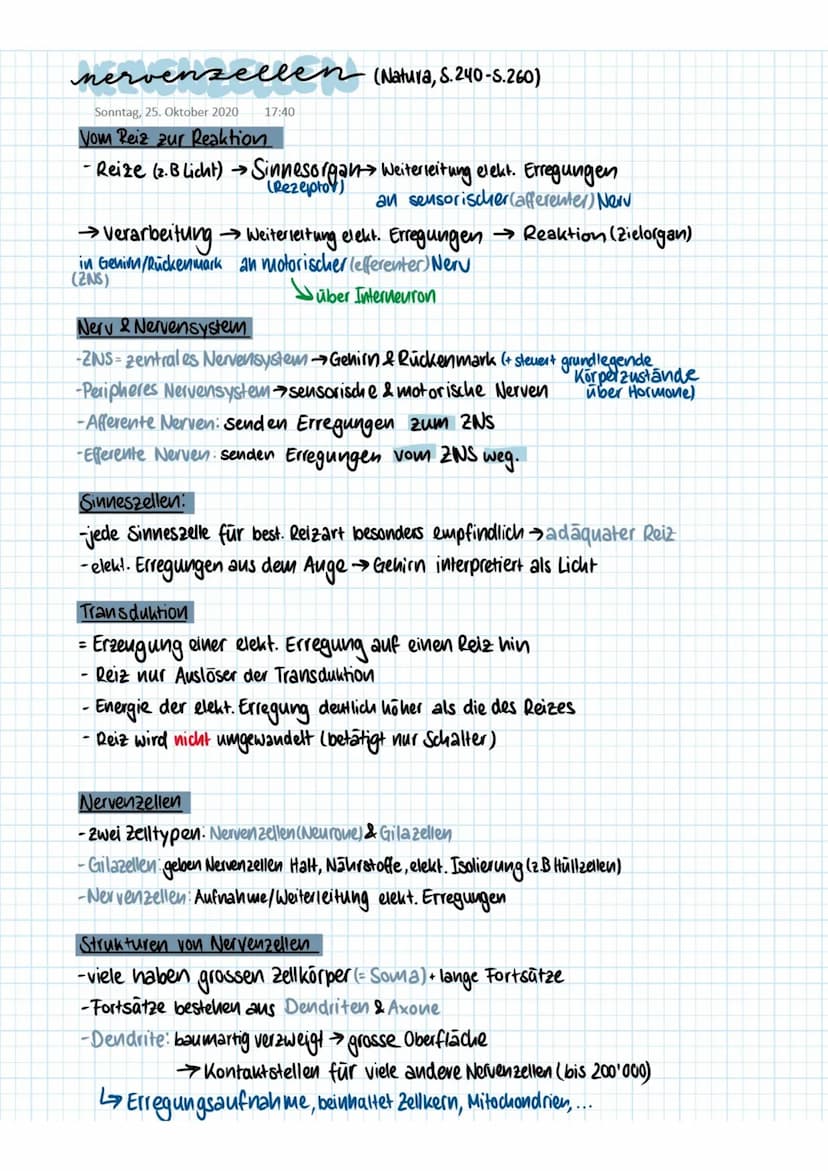 nervenzellen (Natura, S.240-S.260)
Sonntag, 25. Oktober 2020 17:40
Vom Reiz zur Reaktion
- Reize (z.B Licht) → Sinnesorgan → Weiterleitung elekt. Erregungen
(Rezeptor) an sensorischer (afferenter) Nerv
→ Verarbeitung → Weiterleitung elekt. Erregungen → Reaktion (Zielorgan)
in Gehirn/Rückenmark an motorischer (efferenter) Nerv
(ZNS)
↘ über Interneuron
Nerv & Nervensystem
-ZNS = zentrales Nervensystem → Gehirn & Rückenmark (+ steuert grundlegende
Körperzustände
-Peripheres Nervensystem → sensorische & motorische Nerven über Hormone)
-Afferente Nerven: senden Erregungen zum ZNS
-Efferente Nerven: senden Erregungen vom ZNS weg.
Sinneszellen:
-jede Sinneszelle für best. Reizart besonders empfindlich → adäquater Reiz
- elekt. Erregungen aus dem Auge → Gehirn interpretiert als Licht
Transduktion
= Erzeugung einer elekt. Erregung auf einen Reiz hin
- Reiz nur Auslöser der Transduktion
- Energie der elekt. Erregung deutlich höher als die des Reizes
- Reiz wird nicht umgewandelt (betätigt nur Schalter)
Nervenzellen
- zwei Zelltypen: Nervenzellen (Neurone) & Gilazellen
- Gilazellen: geben Nervenzellen Halt, Nährstoffe, elekt. Isolierung (z.B Hüllzellen)
-Nervenzellen: Aufnahme/Weiterleitung elekt. Erregungen
Strukturen von Nervenzellen
-viele haben grossen Zellkörper (= Soma) + lange Fortsätze
-Fortsätze bestehen aus Dendriten & Axone
-Dendrite: baumartig verzweigt → grosse Oberfläche
→ Kontaktstellen für viele andere Nervenzellen (bis 200'000)
↳ Erregungsaufnahme, beinhaltet Zellkern, Mitochondrien, ...